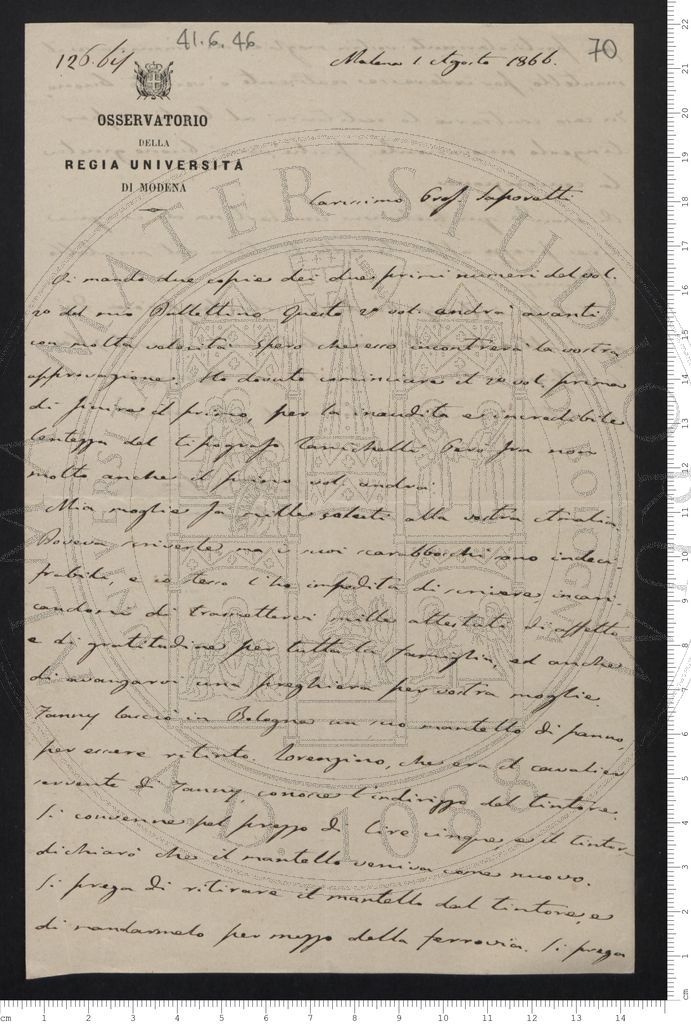 126. bis
41.6.46
70
Modena 1 Agosto 1866.
OSSERVATORIO
DELLA
REGIA UNIVERSITÀ
DI MODENA
Carissimo Prof Saporetti
Vi mando due copie dei due primi numeri del vol.
2o del mio Bullettino Questo 2o vol. andrà avanti
con molta velocità. Spero che esso incontrerà la vostra
approvazione. Ho dovuto cominciare il 2o vol. prima
di finire il primo, per la inaudita ed incredibile
lentezza del tipografo Zanichelli Però fra non
molto anche il primo vol. andrà.
Mia moglie fa mille saluti alla vostra Amalia.
Doveva scriverle ma i suoi scarabbocchi sono indeci-
frabili, e io stesso l'ho impedita di scrivere incari
candomi di trasmettervi mille attestati di affetto
e di gratitudine per tutta la famiglia, ed anche
di avanzarvi una preghiera per vostra moglie.
Fanny lasciò in Bologna un suo mantello di panno,
per essere ritinto. Lorenzino, che era il cavalier
servente di Fanny, conosce l'indirizzo del tintore.
Si convenne pel prezzo di lire cinque e il tintor-
dichiarò che il mantello veniva come nuovo.
Si prega di ritirare il mantello dal tintore, e
di mandarmelo per mezzo della ferrovia. Si prega